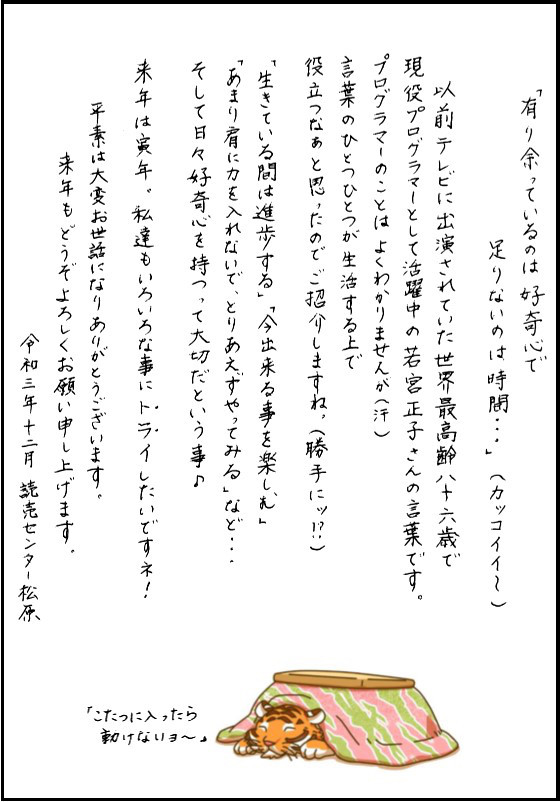 「有り余っているのは好奇心で
足りないのは時間・・・」（カッコイイ～）
以前テレビに出演されていた世界最高齢八十六歳で
現役プログラマーとして活躍中の若宮正子さんの言葉です。
プログラマーのことはよくわかりませんが（汗）
言葉のひとつひとつが生活する上で
役立つなぁと思ったのでご招介しますねっ（勝手にッ!?）
「生きている間は進歩する」「今出来る事を楽しむ」
「あまり肩に力を入れないで、とりあえずやってみる」など・・・
そして日々好奇心を持つって大切だという事♪
来年は寅年。私達もいろいろな事にトライしたいですネ!
平素は大変お世話になりありがとうございます。
来年もどうぞよろしくお願い申し上げます。
令和三年十二月 読売センター松原
「こたつに入ったら
動けないヨ～」